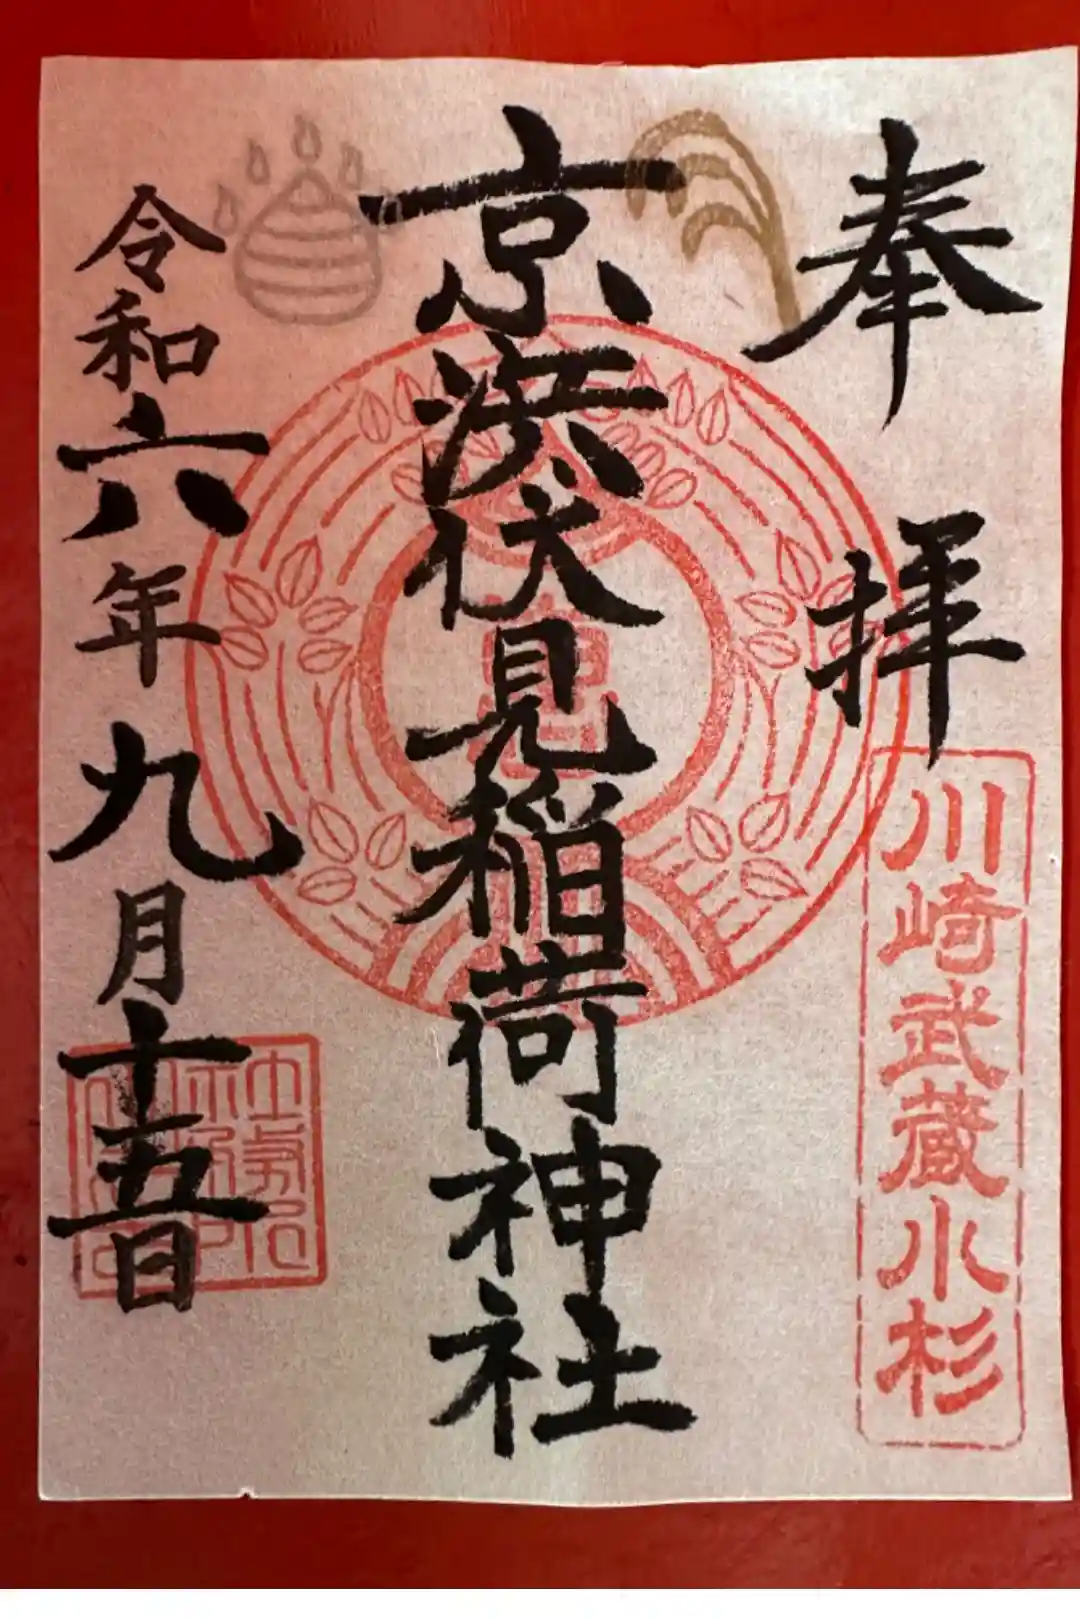 奉拝
川崎武蔵小杉
京濱伏見稲荷神社
令和六年九月十五日